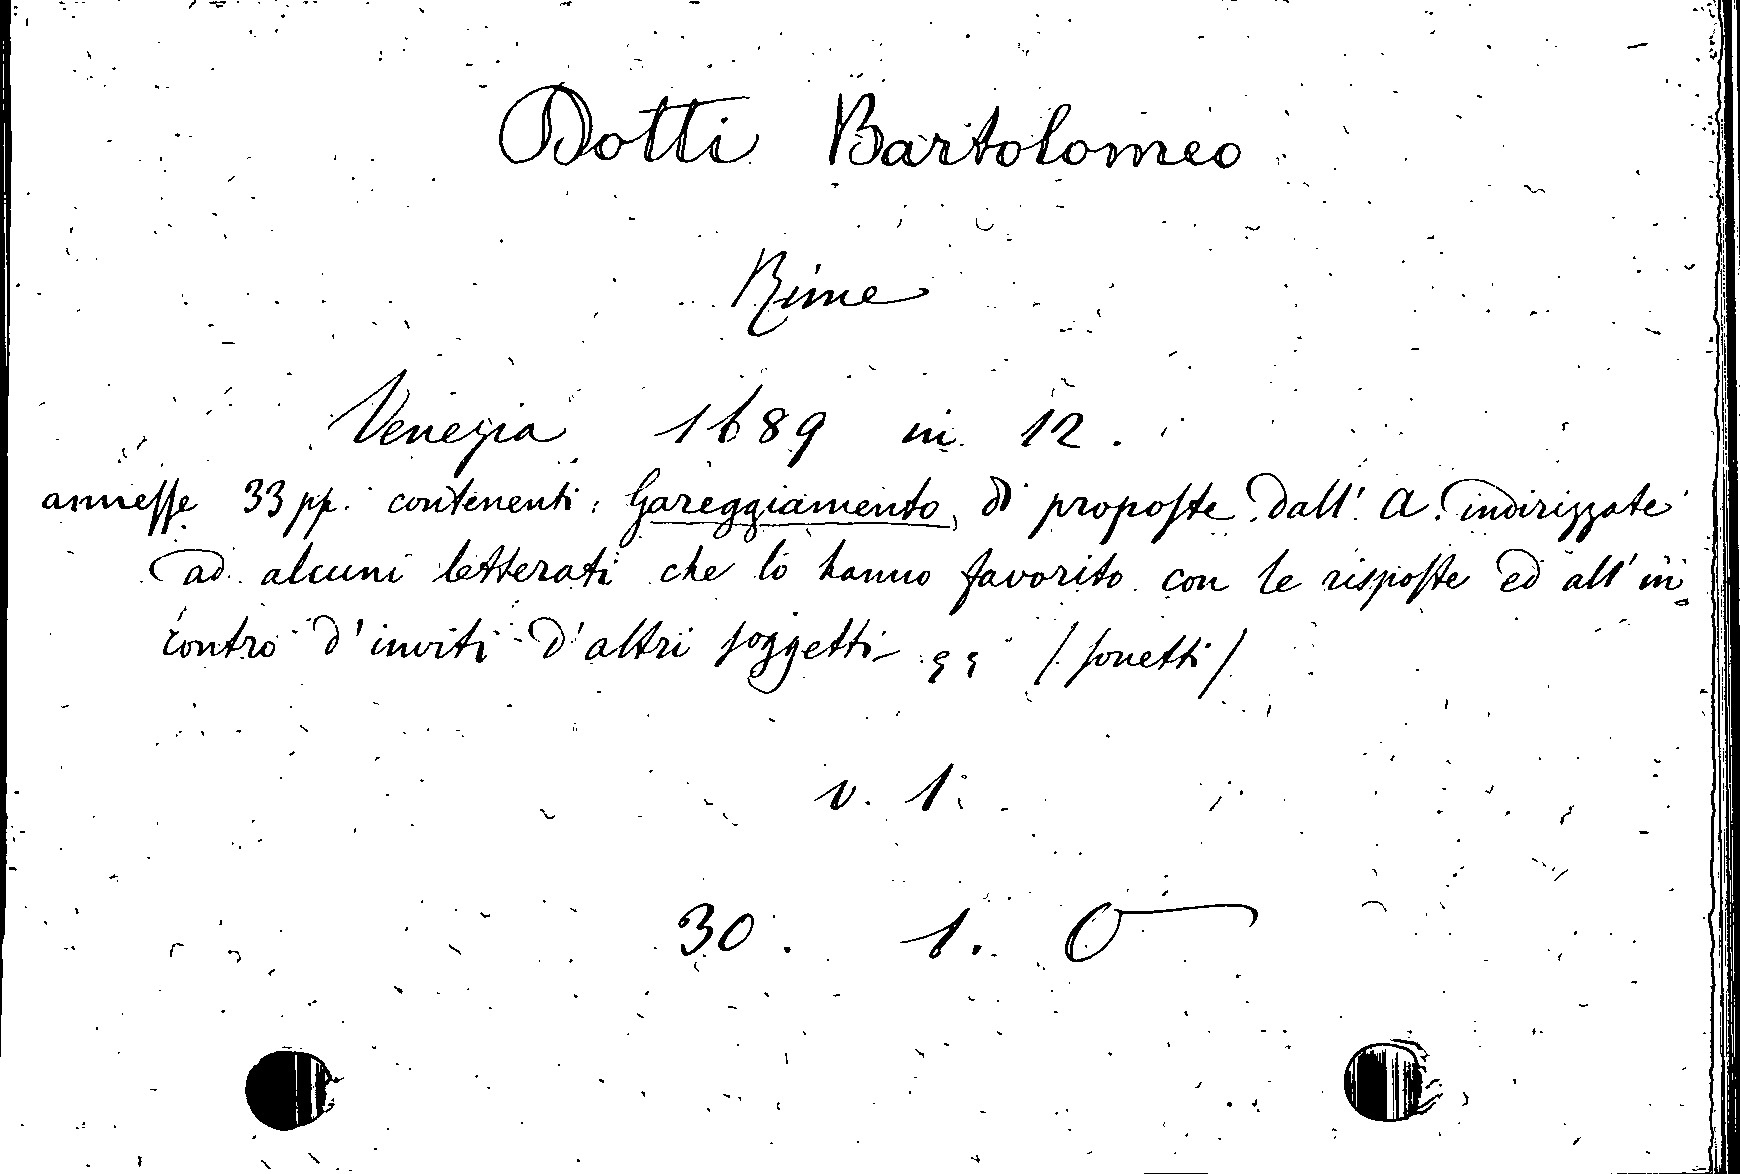 Dotti Bartolomeo
Rime
Venezia 1689 in 12.
annesse 33 pp. contenenti: Gareggiamento di proposte dall' A. indirizzate
ad alcuni letterati che lo hanno favorito con le risposte ed all' in=
contro d' inviti d' altri soggetti /sonetti/
v. 1.
30. 1. O